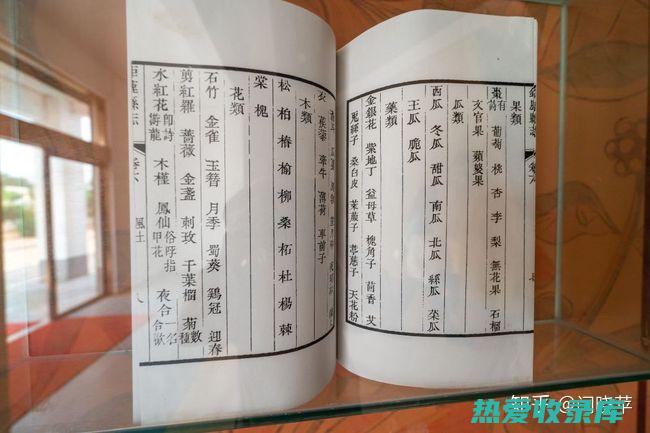 卷六
果類
棗有詩 葡萄 桃 杏 李 梨 無花果 石榴
文官果 蘋婆果
瓜類
西瓜 冬瓜 甜瓜 南瓜 北瓜 絲瓜 菜瓜
王瓜 脆瓜
藥類
金銀花 紫地丁 益母草 槐角子 茴香 艾
兎絲子 桑白皮 天花粉
牽牛 薄荷 車前子
木類
松 柏 椿 榆 柳 桑 柘 杜 楊 棘
棠 槐
花類
石竹 金雀 玉簪 月季 蜀葵 鷄冠 迎春
剪紅羅 薔薇 金盞 刺玫 千葉榴 菊數種
水紅花即詩游龍 木槿 鳳仙俗呼指甲花 夜合一名合歡
縣志 卷六 風土 八
知乎 @闫晓苹
热爱收录库